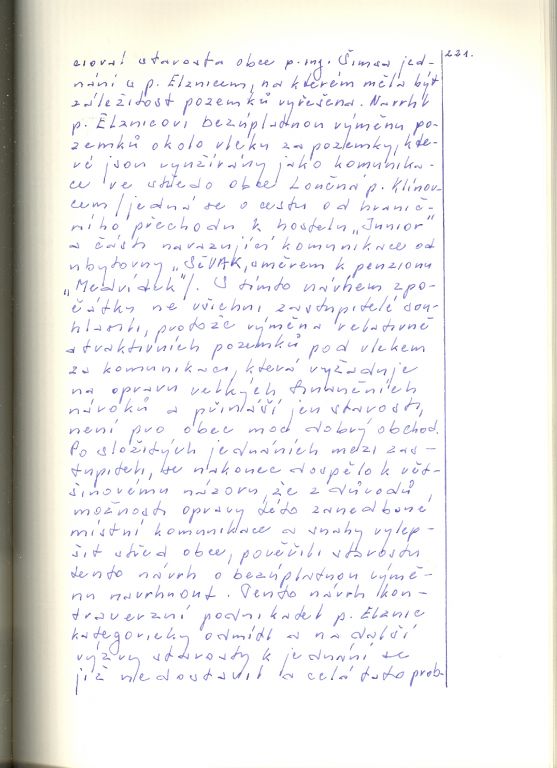 221.
cioval starosta obce p. ing. Šimsa jed-
nání s p. Elznicem, na kterém měla být
záležitost pozemků vyřešena. Navrhl
p. Elznicovi bezúplatnou výměnu po-
zemků okolo vleku za pozemky, kte-
ré jsou využívány jako komunika-
ce ve středu obce Loučná p. Klínov-
cem /jedná se o cestu od hranič-
ního přechodu k hostelu „Junior"
a části navazující komunikace od
ubytovny „SEVAK, směrem k penzionu
„Medvídek"/. S tímto návrhem zpo-
čátku ne všichni zastupitelé sou-
hlasili, protože výměna relativně
atraktivních pozemků pod vlekem
za komunikaci, která vyžaduje
na opravu velkých finančních
nároků a přináší jen starosti,
není pro obec moc dobrý obchod.
Po složitých jednáních mezi zas-
tupiteli, se nakonec dospělo k vět-
šinovému názoru, že z důvodů
možnosti opravy této zanedbané
místní komunikace a snahy vylep-
šit střed obce, pověřili starostu
tento návrh o bezúplatnou výmě-
nu navrhnout. Tento návrh kon-
traverzní podnikatel p. Elznic
kategoricky odmítl a na další
výzvy starosty k jednání se
již nedostavil a celá tato prob-